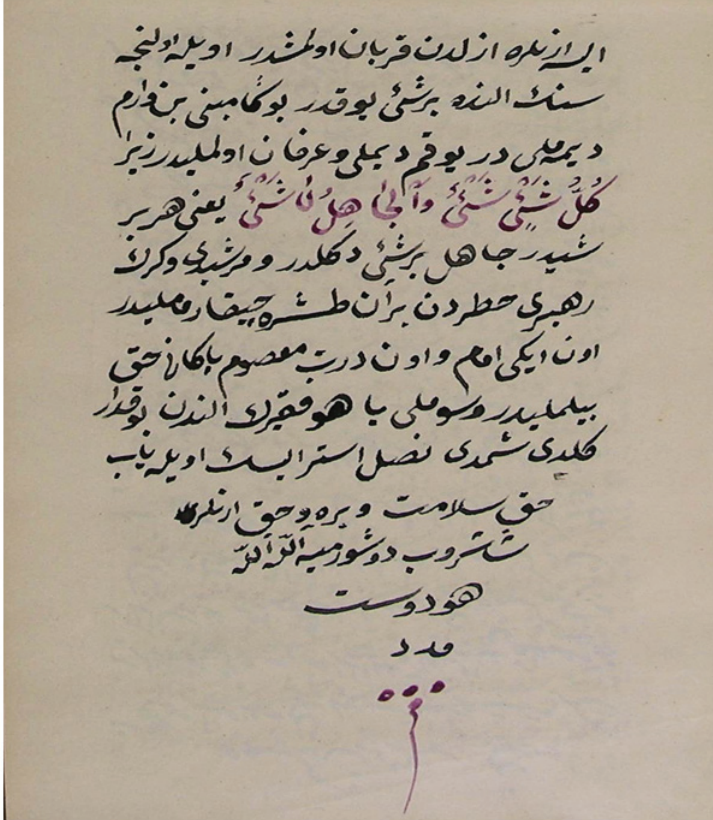 ایسه ارنلره ازلدن قربان اولمشدر اویله اولنجه
سنك النده برشئ یوقدر بوكا مبنی بن وارم
دیمه ملی در یوقم دیملی و عرفان اولملیدر زیرا
كُلُّ شَیْئٍ شَیْئٌ وَالْجَاهِلُ لَا شَیْئٌ یعنی هر بر
شیدر جاهل برشئ دكلدر و مرشدی و كرك
رهبری خطردن بر آن طشره چیقارماملیدر
اون ایكی امام و اون درت معصوم پاكانی حق
بیلملیدر و سوملی یا هو فقیرك الندن بو قدر
كلدی شمدی نصل استر ایسك اویله یاپ
حق سلامت ویره و حق ارنلری
شاشروب دوشورمیه الله الله
هو دوست
مدد